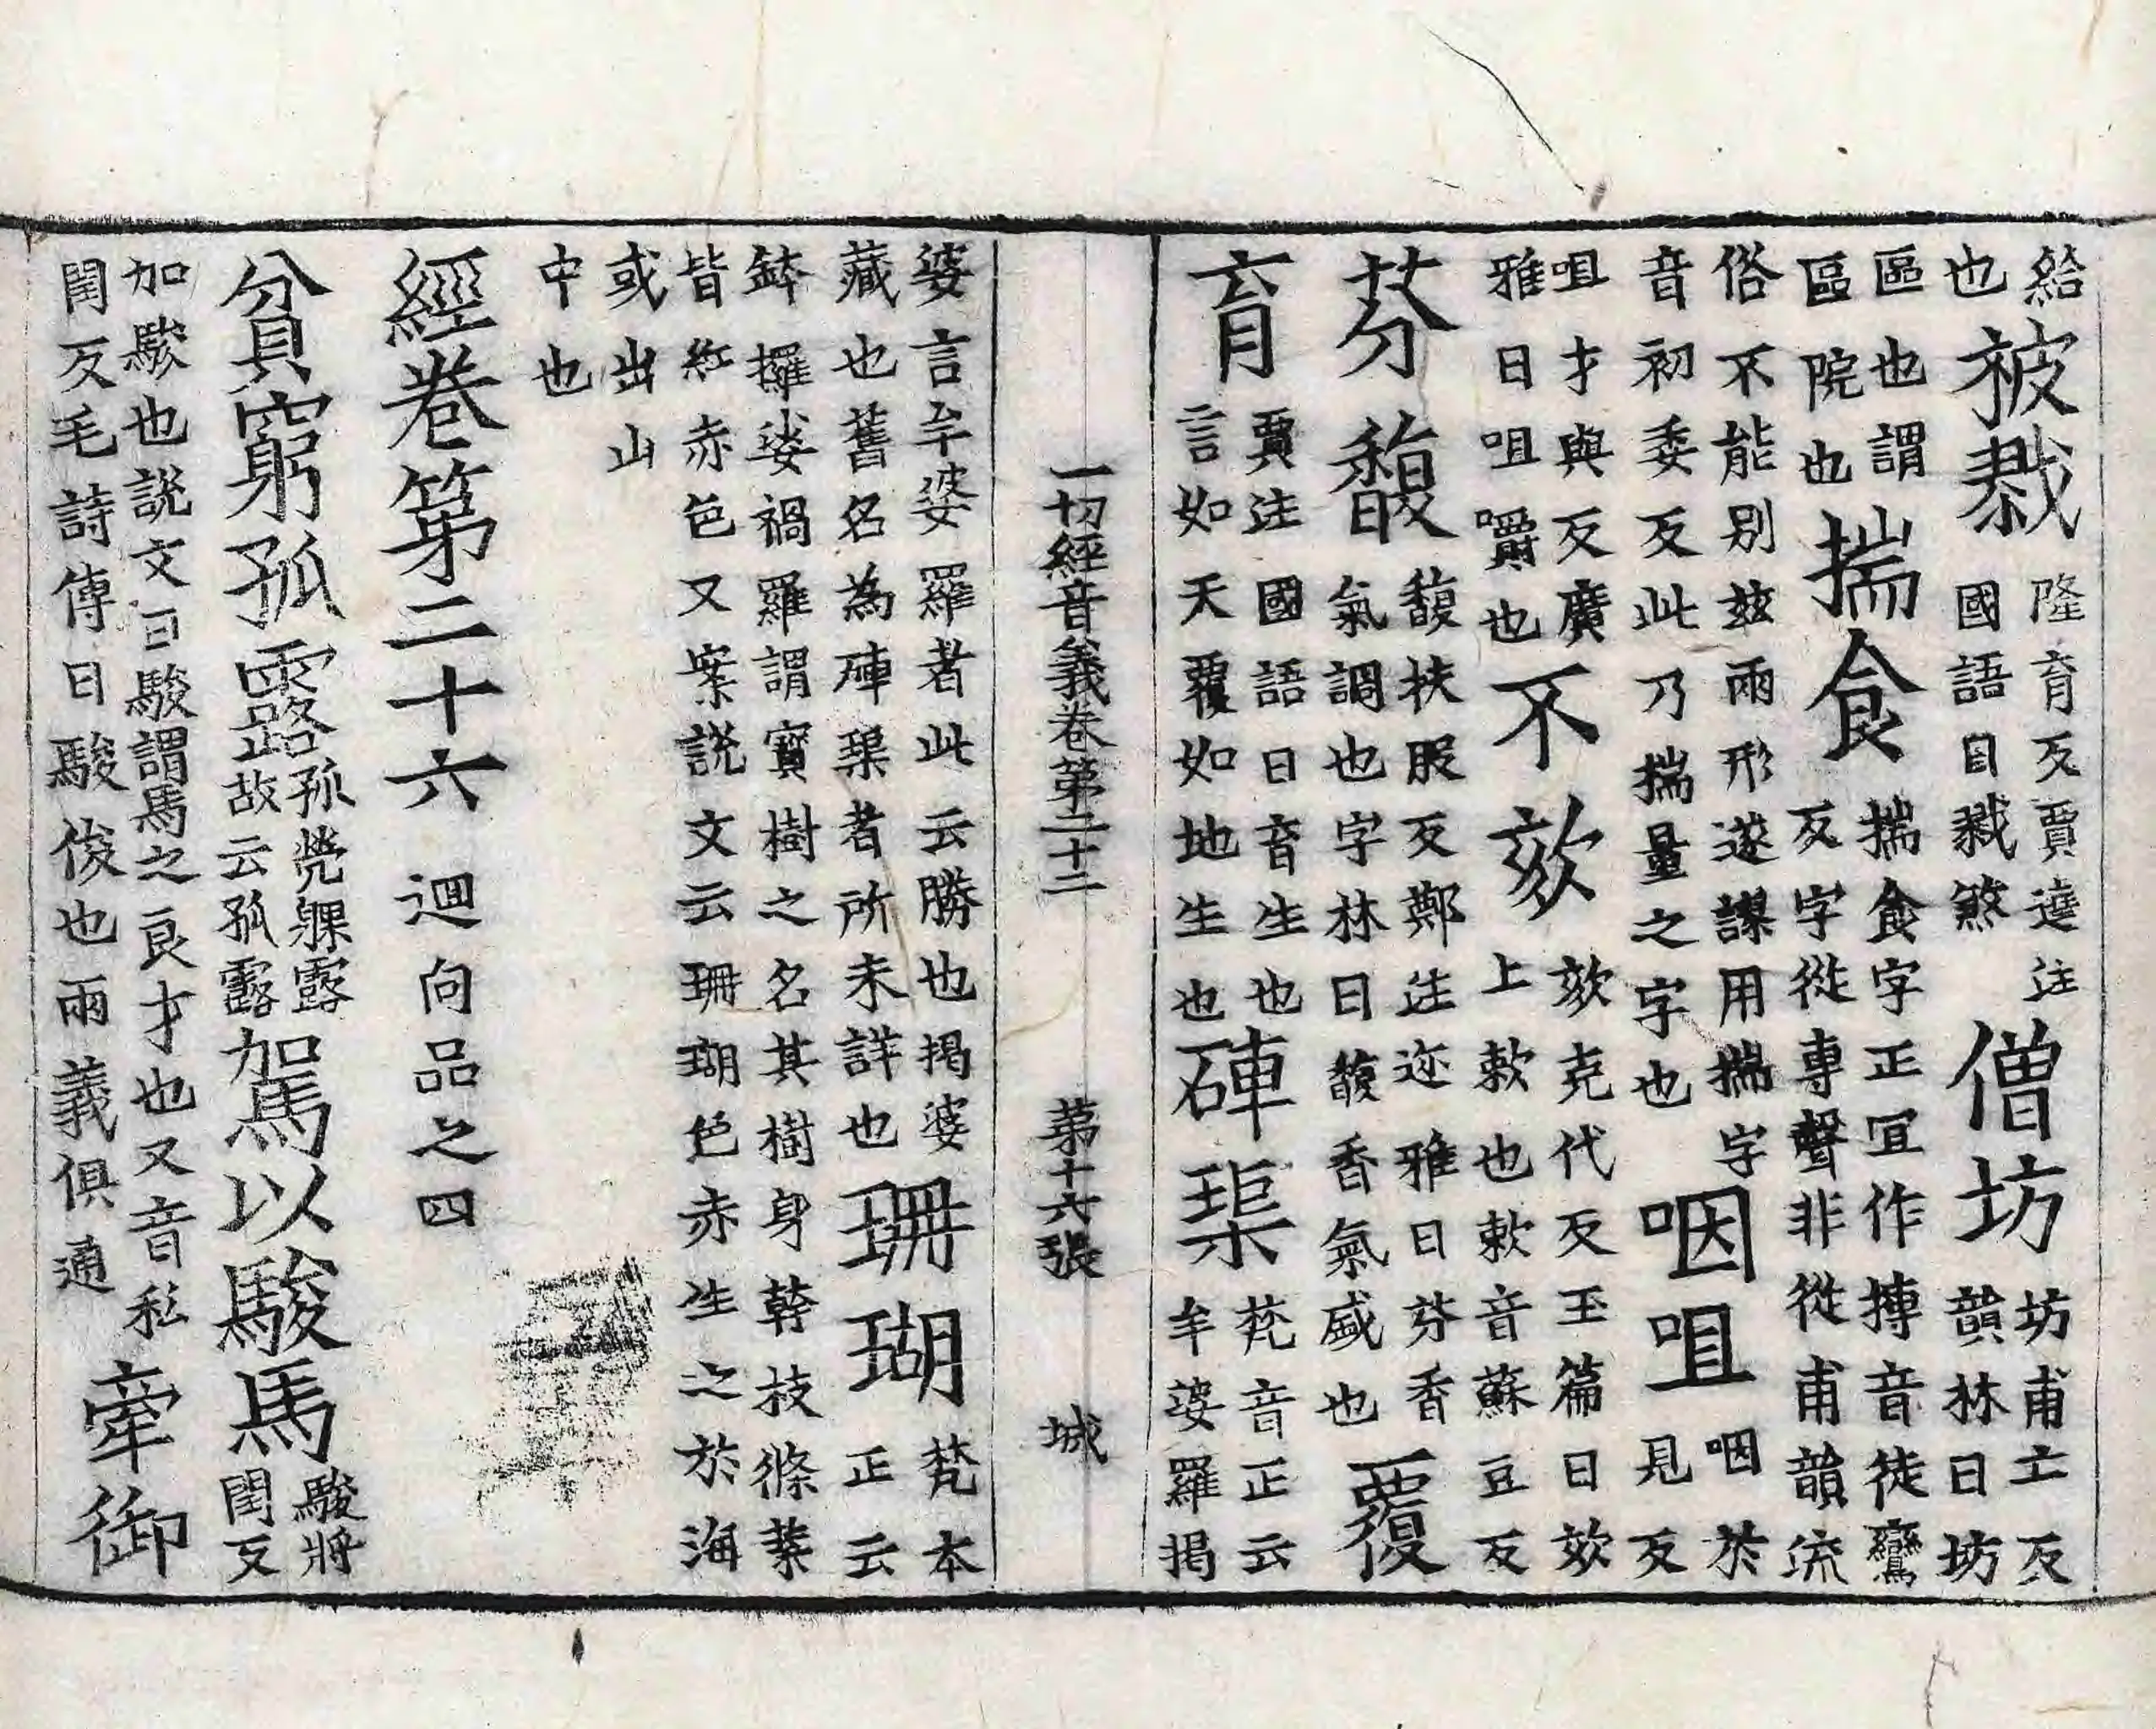 給也被戮隆育反賈逵注國語曰戮煞僧坊坊甫亡反韻林曰坊
區也謂區院也揣食揣食字正冝作摶音徒鸞反字從專聲非從甫韻流
俗不能別玆兩形遂謀用揣字音初委反此乃揣量之字也咽咀咽於見反
咀才與反廣雅曰咀嚼也不欬欬克代反玉篇曰欬上欶也欶音蘇豆反
芬馥馥扶服反鄭注迩雅曰芬香氣調也字林曰馥香氣盛也覆
育賈注國語曰育生也言如天覆如地生也硨璖梵音正云牟婆羅揭
一切經音義卷第二十二 第十六張 城
婆言牟婆羅者此云勝也揭婆藏也舊名為硨璖者所未詳也珊瑚梵本正云
鉢攞娑禍羅謂寶樹之名其樹身幹枝條葉皆紅赤色又案說文云珊瑚色赤生之於海
或出山中也
經卷第二十六 迴向品之四
貧窮孤露孤煢躶露故云孤露駕以駿馬駿將閏反
加駿也說文曰駿謂馬之良才也又音私閏反毛詩傳曰駿俊也兩義俱通牽御